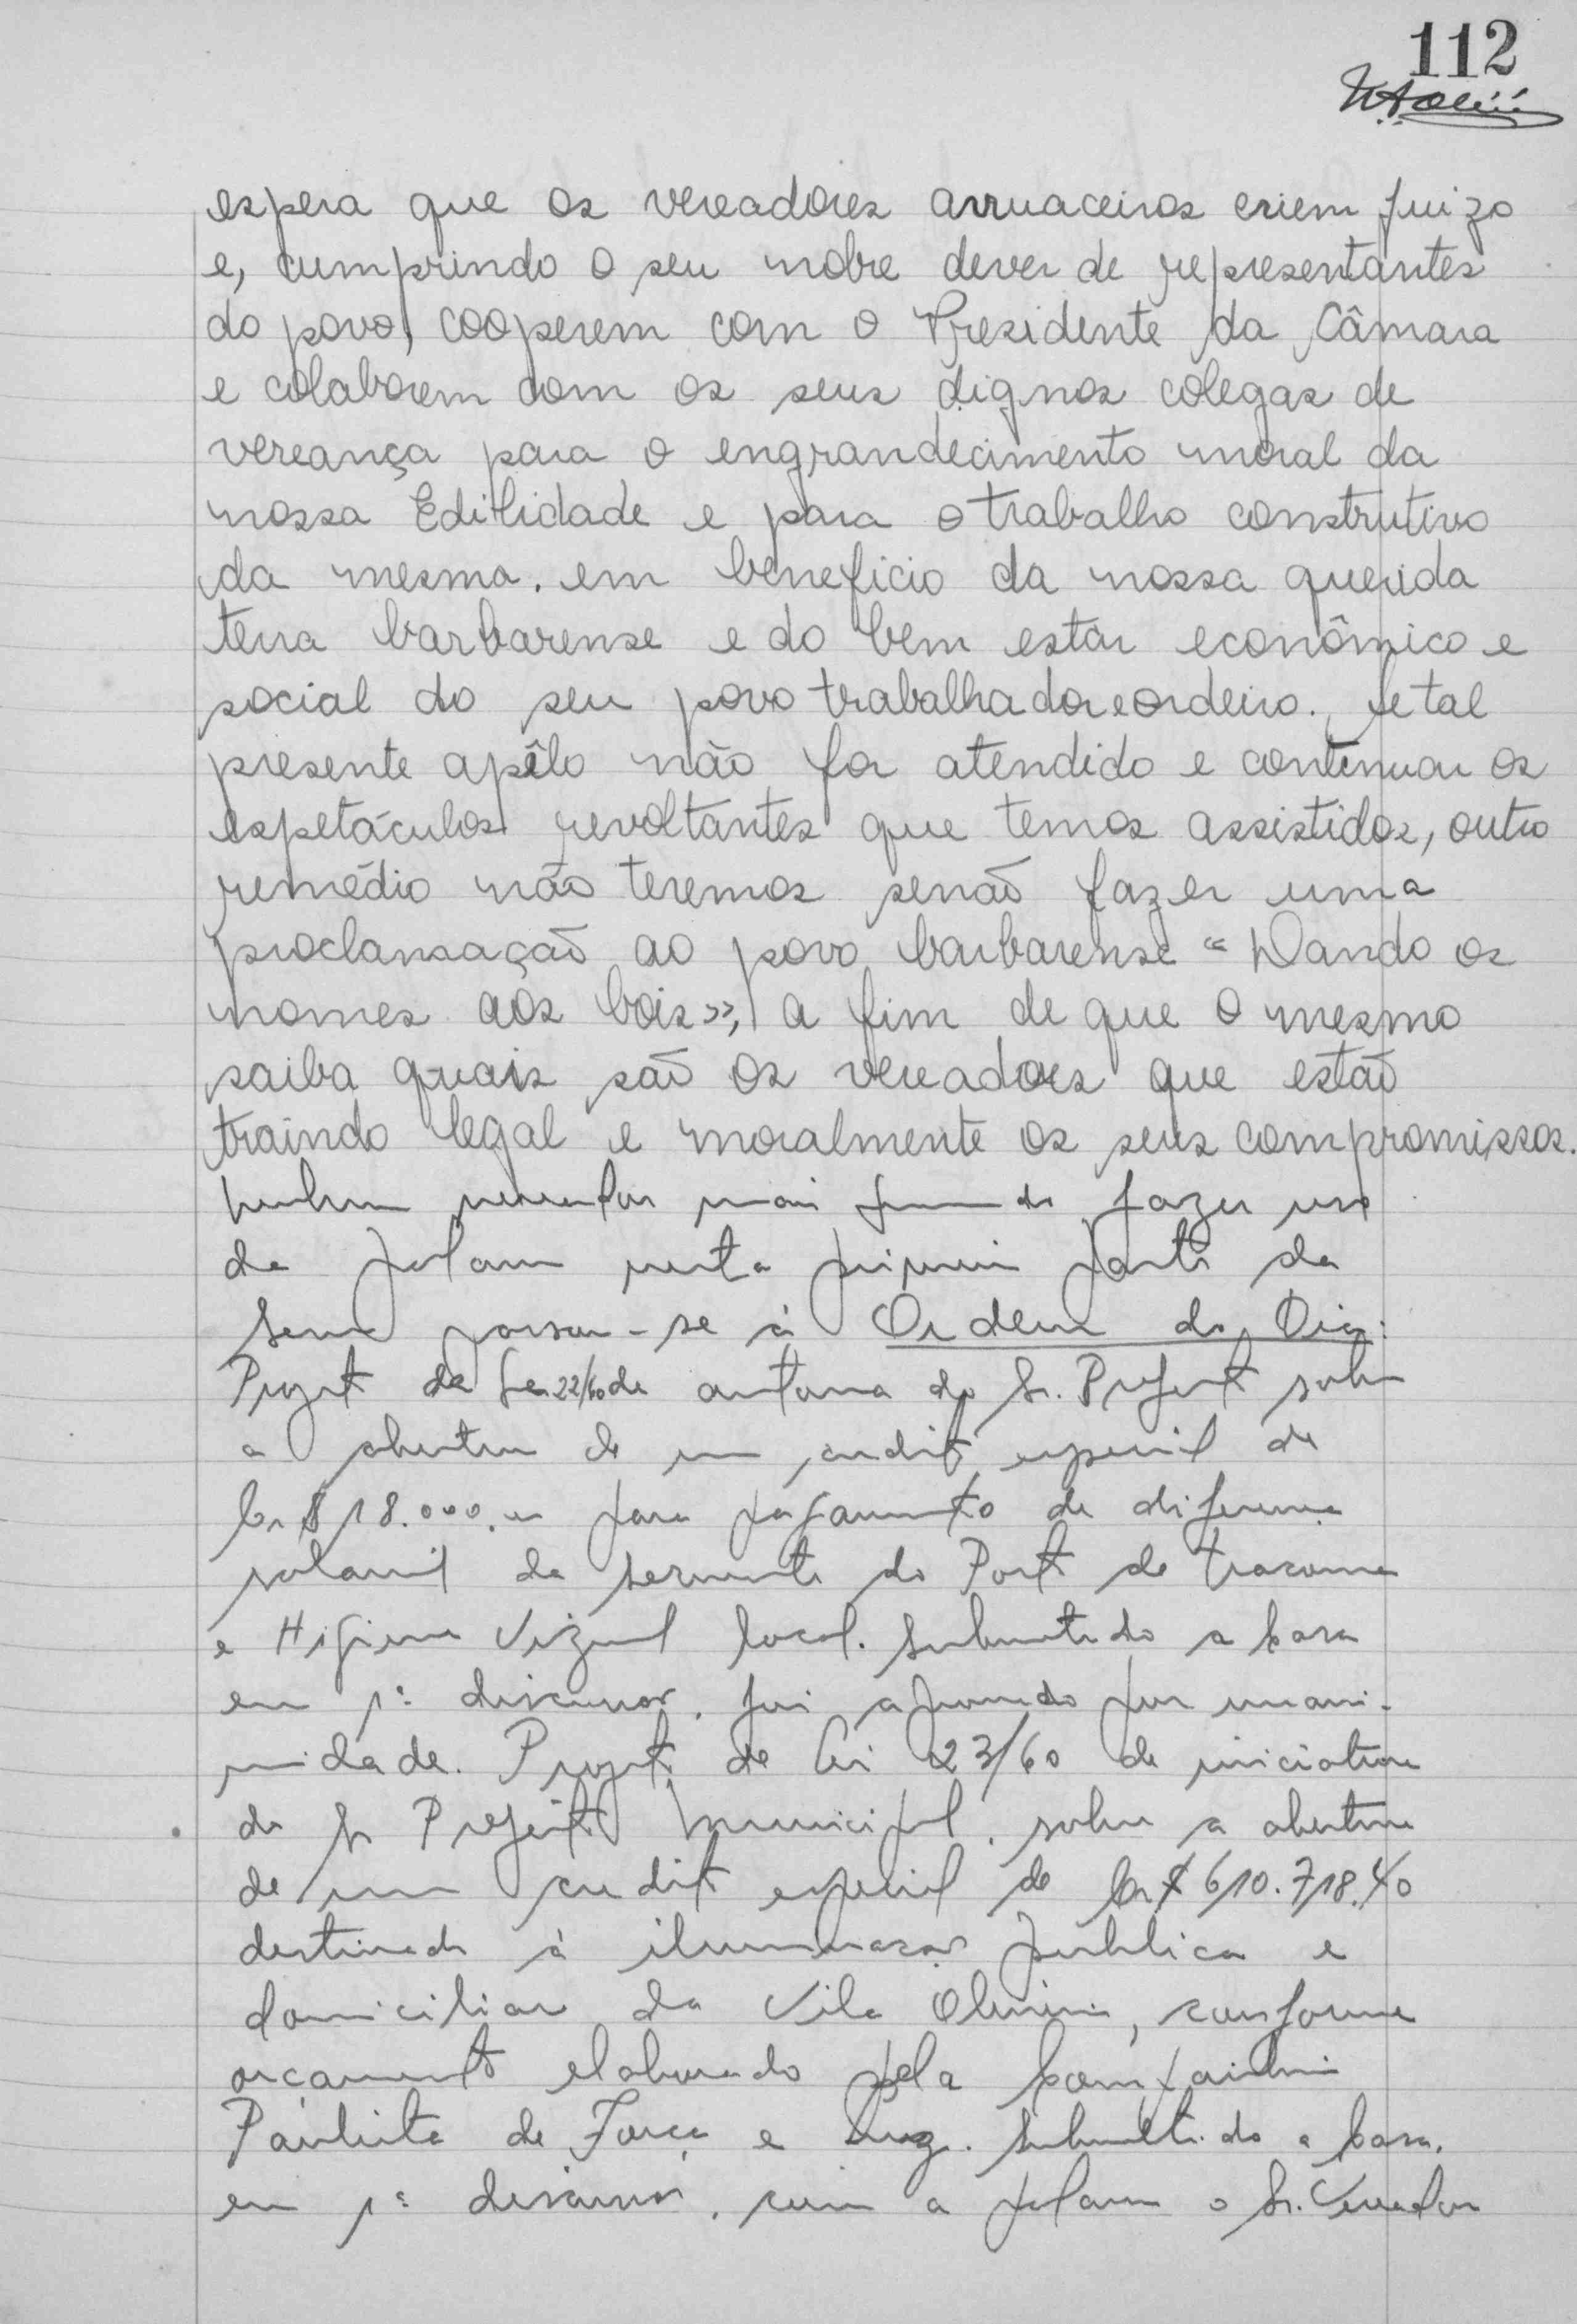 112
espera que os vereadores arruaceiros criem juizo
e, cumprindo o seu nobre dever de representantes
do povo, cooperem com o Presidente da Câmara
e colaborem com os seus dignos colegas de
vereança para o engrandecimento moral da
nossa Edilidade e para o trabalho construtivo
da mesma. em beneficio da nossa querida
terra barbarense e do bem estar econômico e
social do seu povo trabalhador e ordeiro. Se tal
presente apêlo não for atendido e continuar os
espetáculos revoltantes que temos assistidos, outro
remédio não teremos senão fazer uma
proclamação ao povo barbarense "Dando os
nomes aos bois», a fim de que o mesmo
saiba quais são os vereadores que estão
traindo legal e moralmente os seus compromissos.
Nenhum vereador mais fazer uso
da palavra nesta primeira parte da
passou-se à Ordem do Dia:
Projeto de Lei 22/60 de autoria do Sr. Prefeito sobre
a abertura de um credito especial de
Cr$ 18.000,00 para pagamento de diferença
salarial da servente do Posto de Tracoma
e Higiene Vizual local. Submetido a Casa
em 1ª discussão, foi aprovado por unani-
midade. Projeto de Lei 23/60 de iniciativa
do Sr Prefeito Municipal, sobre a abertura
de um credito especial de Cr$ 610.718,40
destinado à iluminação publica e
domiciliar da Vila, conforme
orçamento elaborado pela Companhia
Paulista de Força e Luz. Submetido a Casa,
em 1ª discussão, a palavra o Sr. Vereador